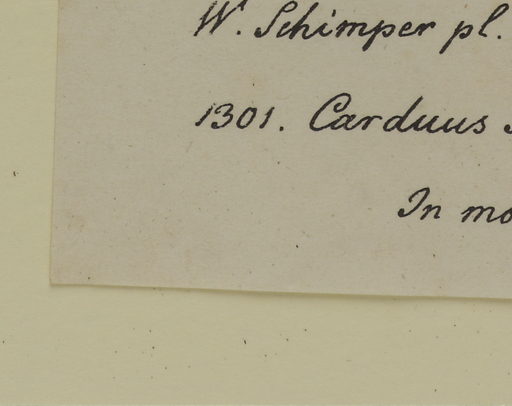 W. Schimper pl.
1301. Carduus
In